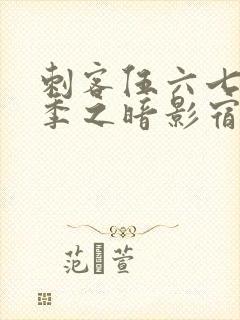 刺客伍六七
季之暗影宿
范 萱